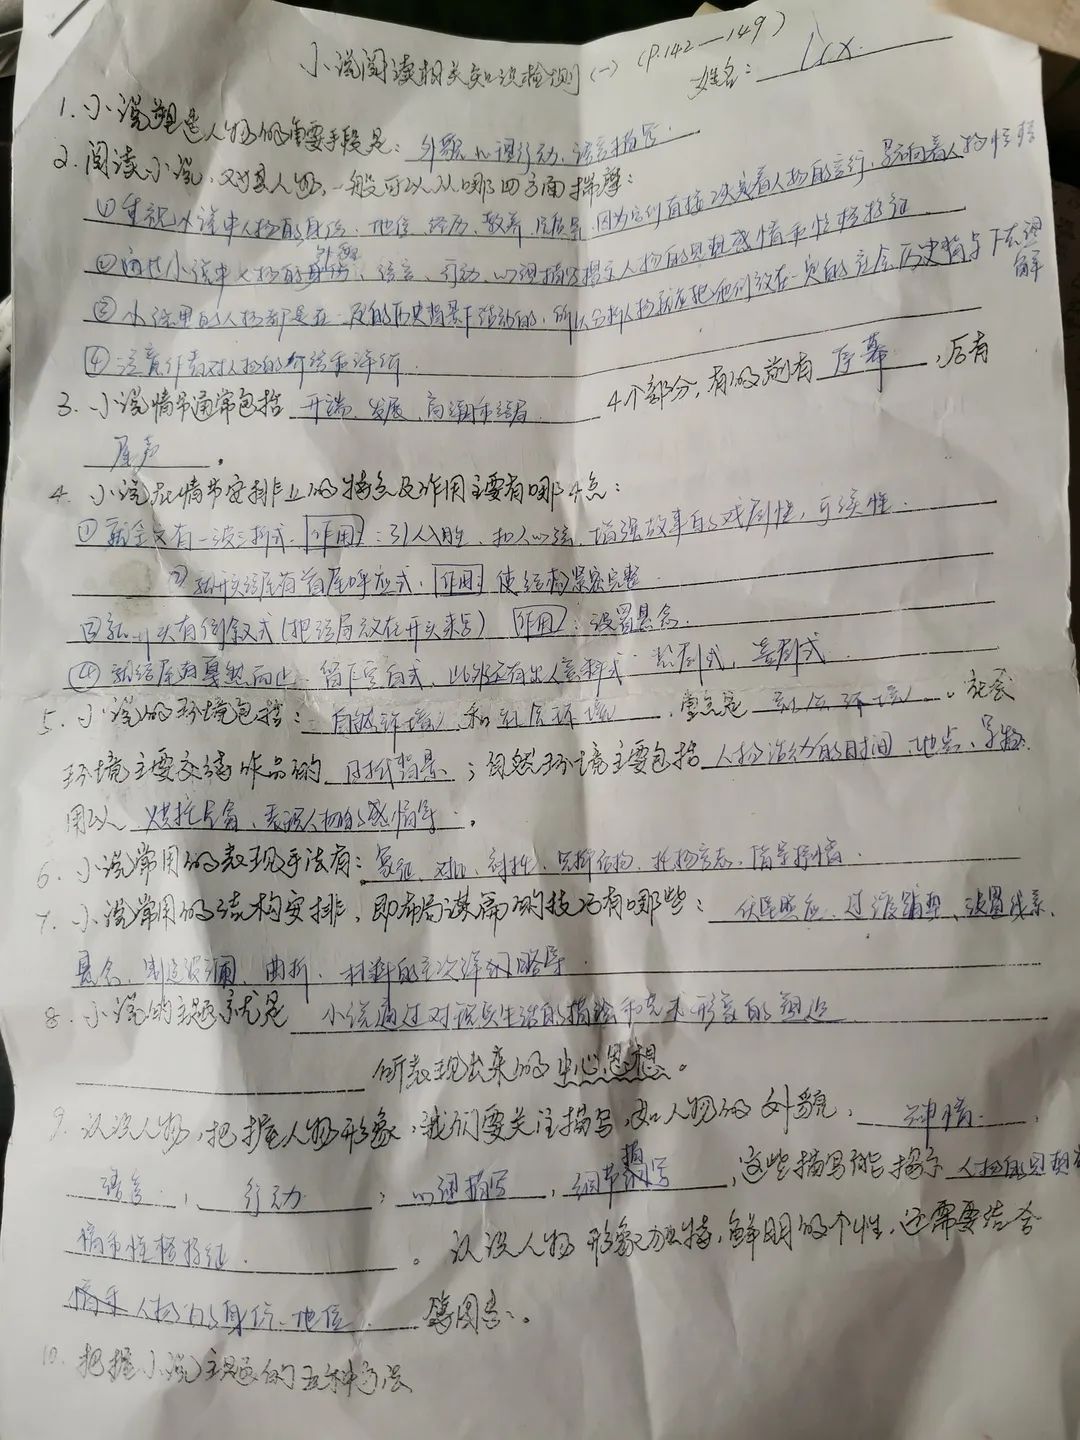 小说阅读相关知识检测(一) (P.142—149)
姓名: lcx.
1. 小说塑造人物的重要手段是: 外貌、心理、行动、语言描写.
2. 阅读小说,对其人物,一般可以从哪四方面揣摩:
①重视小说中人物的身份、地位、经历、教养、气质等,因为它们直接决定着人物的言行,影响着人物性格
② 小说中人物的外貌、语言、行动、心理描写揭示人物的思想感情和性格特征
③小说里的人物都是在一定的历史背景下活动的,所以分析人物就应把他们放在一定的社会历史背景下去理解
④注意作者对人物的介绍和评价.
3. 小说情节通常包括 开端、发展、高潮和结局 4个部分,有的前有 序幕 ,后有
尾声 。
4. 小说在情节安排上的特点及作用主要有哪4点:
①就全文有一波三折式. 作用: 引人入胜、扣人心弦,增强故事的戏剧性,可读性.
②就开头结尾有首尾呼应式. 作用 使结构紧密完整
③就开头有倒叙式(把结局放在开头来写) 作用: 设置悬念.
④就结尾有戛然而止、留下空白式,此外还有出人意料式 悲剧式,喜剧式.
5. 小说的环境包括: 自然环境 和 社会环境 ,重点是 社会环境 。社会
环境主要交待作品的 时代背景 ;自然环境主要包括 人物活动的时间、地点、景物.
用以 烘托气氛、表现人物的感情等 。
6. 小说常用的表现手法有: 象征、对比、衬托、 托物言志、借景抒情.
7. 小说常用的结构安排,即布局谋篇的技巧有哪些: 伏笔照应、过渡铺垫、设置线索、
悬念、制造波澜、曲折、材料的主次详略等
8. 小说的主题就是 小说通过对现实生活的描绘和艺术形象的塑造
所表现出来的中心思想。
9. 认识人物,把握人物形象,我们要关注描写,如人物的外貌、 神情. 、
语言 、 行动 、 心理描写 、 细节描写 ,这些描写能揭示 人物的思想感
情和性格特征. 。认识人物形象独特,鲜明的个性,还需要结合
人物的身份、地位. 等因素。
10. 把握小说主题的五种方法